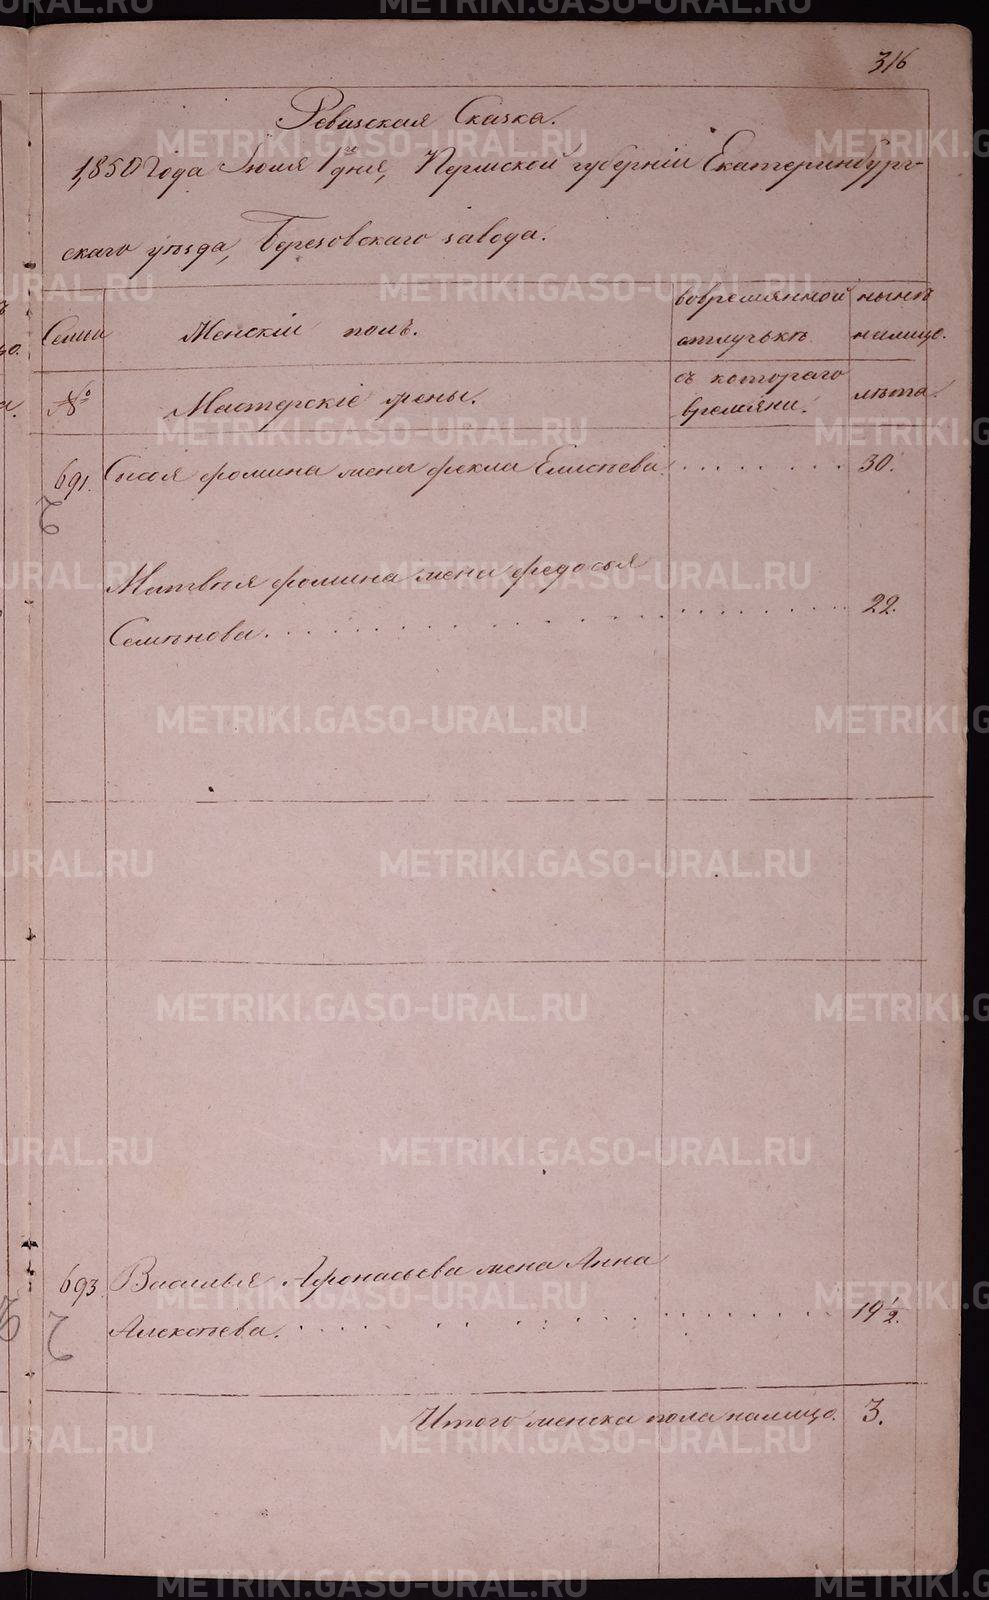 316
Ревизская Сказка.
1850 Года Июня 1го дня, Пермской губерніи Екатеринбург-
скаго уѣзда, Березовскаго завода.
Семьи
Женскій полъ.
вовремянной
отлучькѣ
нынѣ
налицо.
№
Мастерскіе жены.
съ котораго
времяни.
лѣта.
691. фомина жена фекла Елисѣева 30.
Матвѣя фомина жена федосья
Семѣнова. 22.
693. Василья Афонасьева жена Анна
Алексѣева. 19 1/2.
Итого женска пола налицо. 3.
METRIKI.GASO-URAL.RU